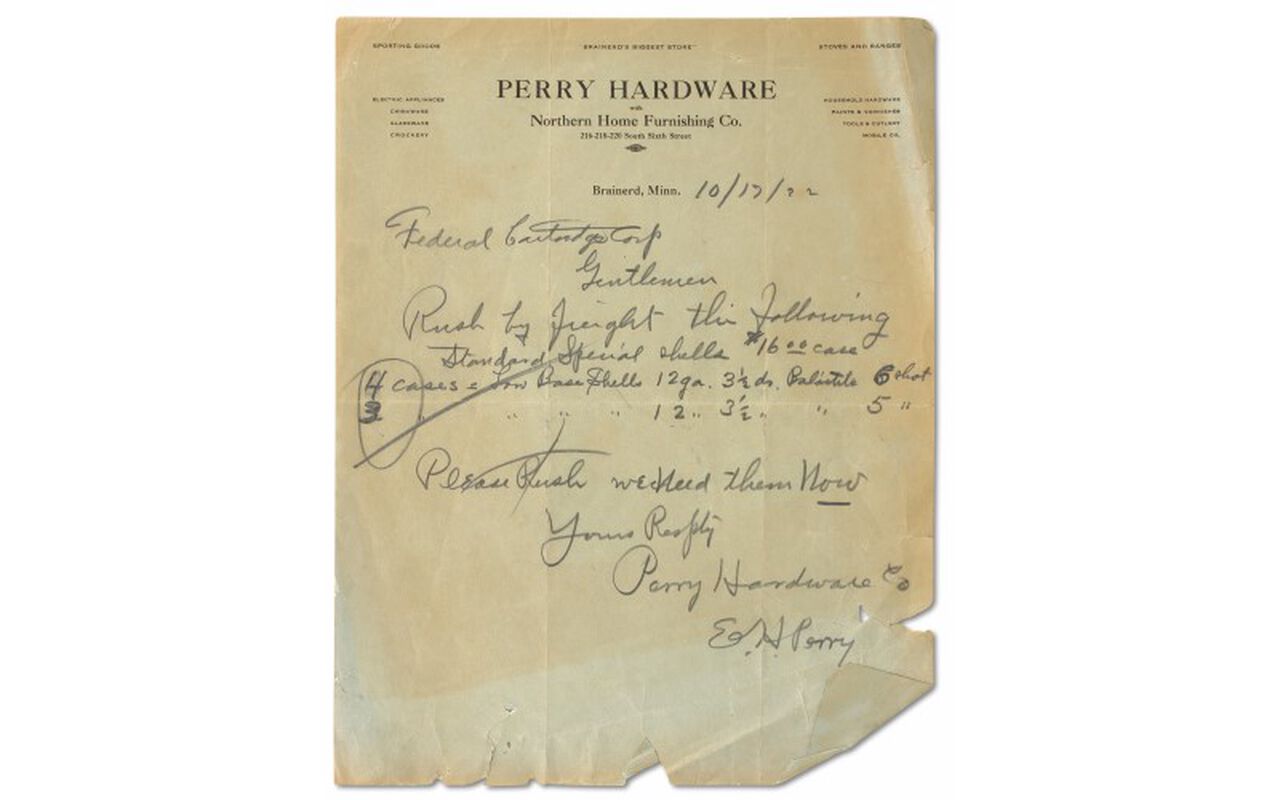 SPORTING GOODS "BRAINERD'S BIGGEST STORE" STOVES AND RANGES
PERRY HARDWARE
ELECTRIC APPLIANCES with HOUSEHOLD HARDWARE
CHINAWARE Northern Home Furnishing Co. PAINTS & VARNISHES
GLASSWARE TOOLS & CUTLERY
CROCKERY 216-218-220 South Sixth Street MOBILE OIL
Brainerd, Minn. 10/17/22
Federal Cartridge Corp
Gentlemen
Rush by freight the following
Standard Special shells $16.00 case
4 cases = Low Base Shells 12 ga. 3½ ds. 6 shot
3 " " " " 12 " 3½ " " 5 "
Please Rush we Need them Now
Yours Respty
Perry Hardware Co
E. H. Perry